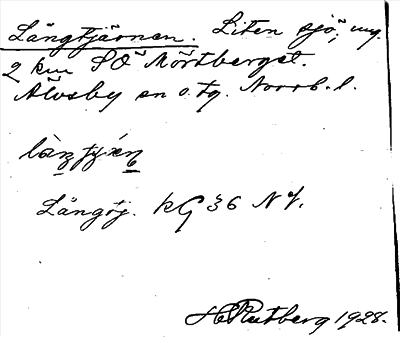 Långtjärnen. Liten sjö, ung.
2 km SO Mörtberget.
Älvsby sn o. tg. Norrb. l.
Långtj. KG 36 NV.
H Rutberg 1928.